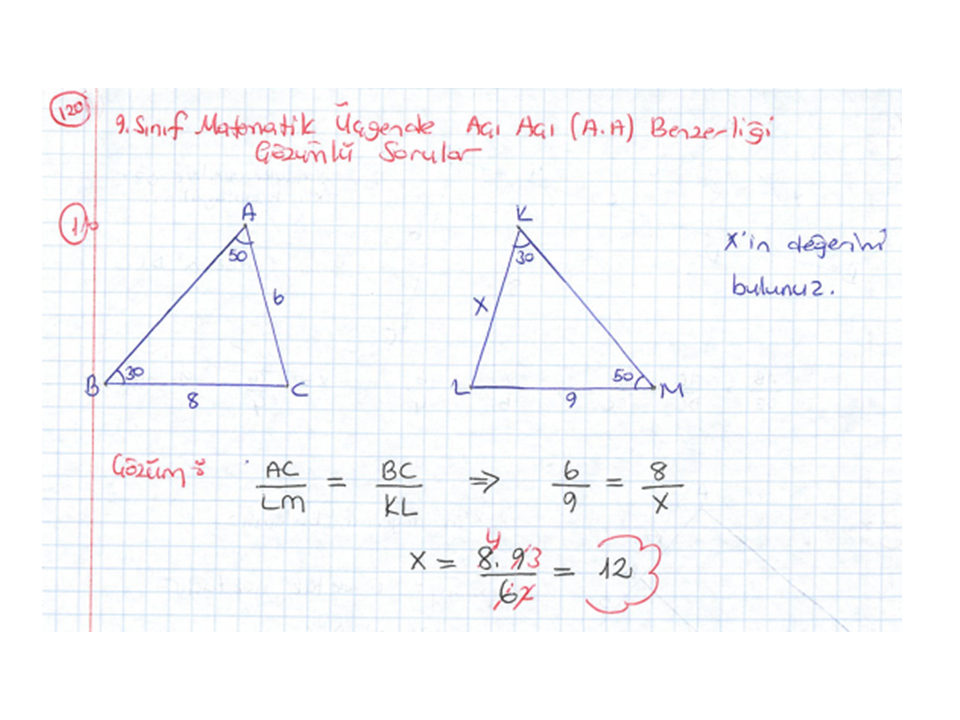 120
9. Sınıf Matematik Üçgende Açı Açı (A.A) Benzerliği
Çözümlü Sorular
1)
A
50
6
B
30
8
C
K
30
X
L
9
50
M
X'in değerini
bulunuz.
Çözüm:
AC/LM = BC/KL ⇒ 6/9 = 8/X
X = 8.9/6 = 12
4
3
2